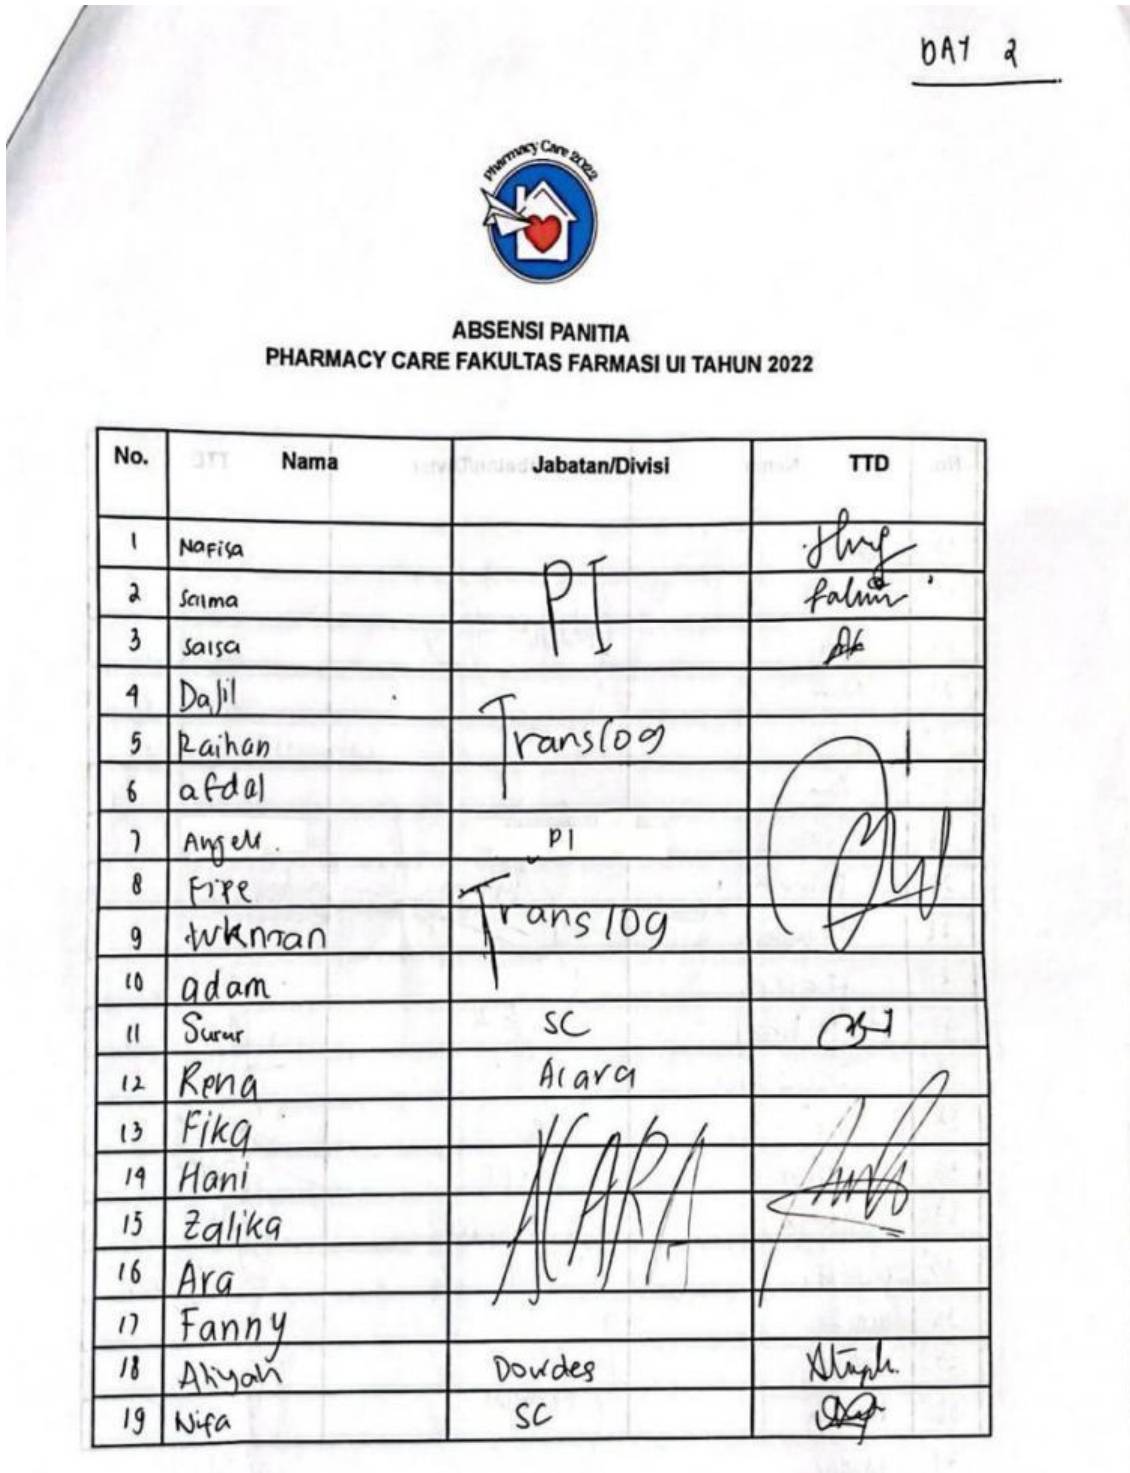 DAY 2
Pharmacy Care 2022
ABSENSI PANITIA
PHARMACY CARE FAKULTAS FARMASI UI TAHUN 2022
No. Nama Jabatan/Divisi TTD
1 Nafisa
PI
2 Salma
3 Salsa
4 Dalil
Translog
5 Raihan
6 afdal
7 PI
8
Translog
9
10 adam
11 Surur SC
12 Rena Acara
13 Fika
14 Hani
ACARA
15 Zalika
16 Ara
17 Fanny
18 Aliyah Dowdes
19 Nifa SC